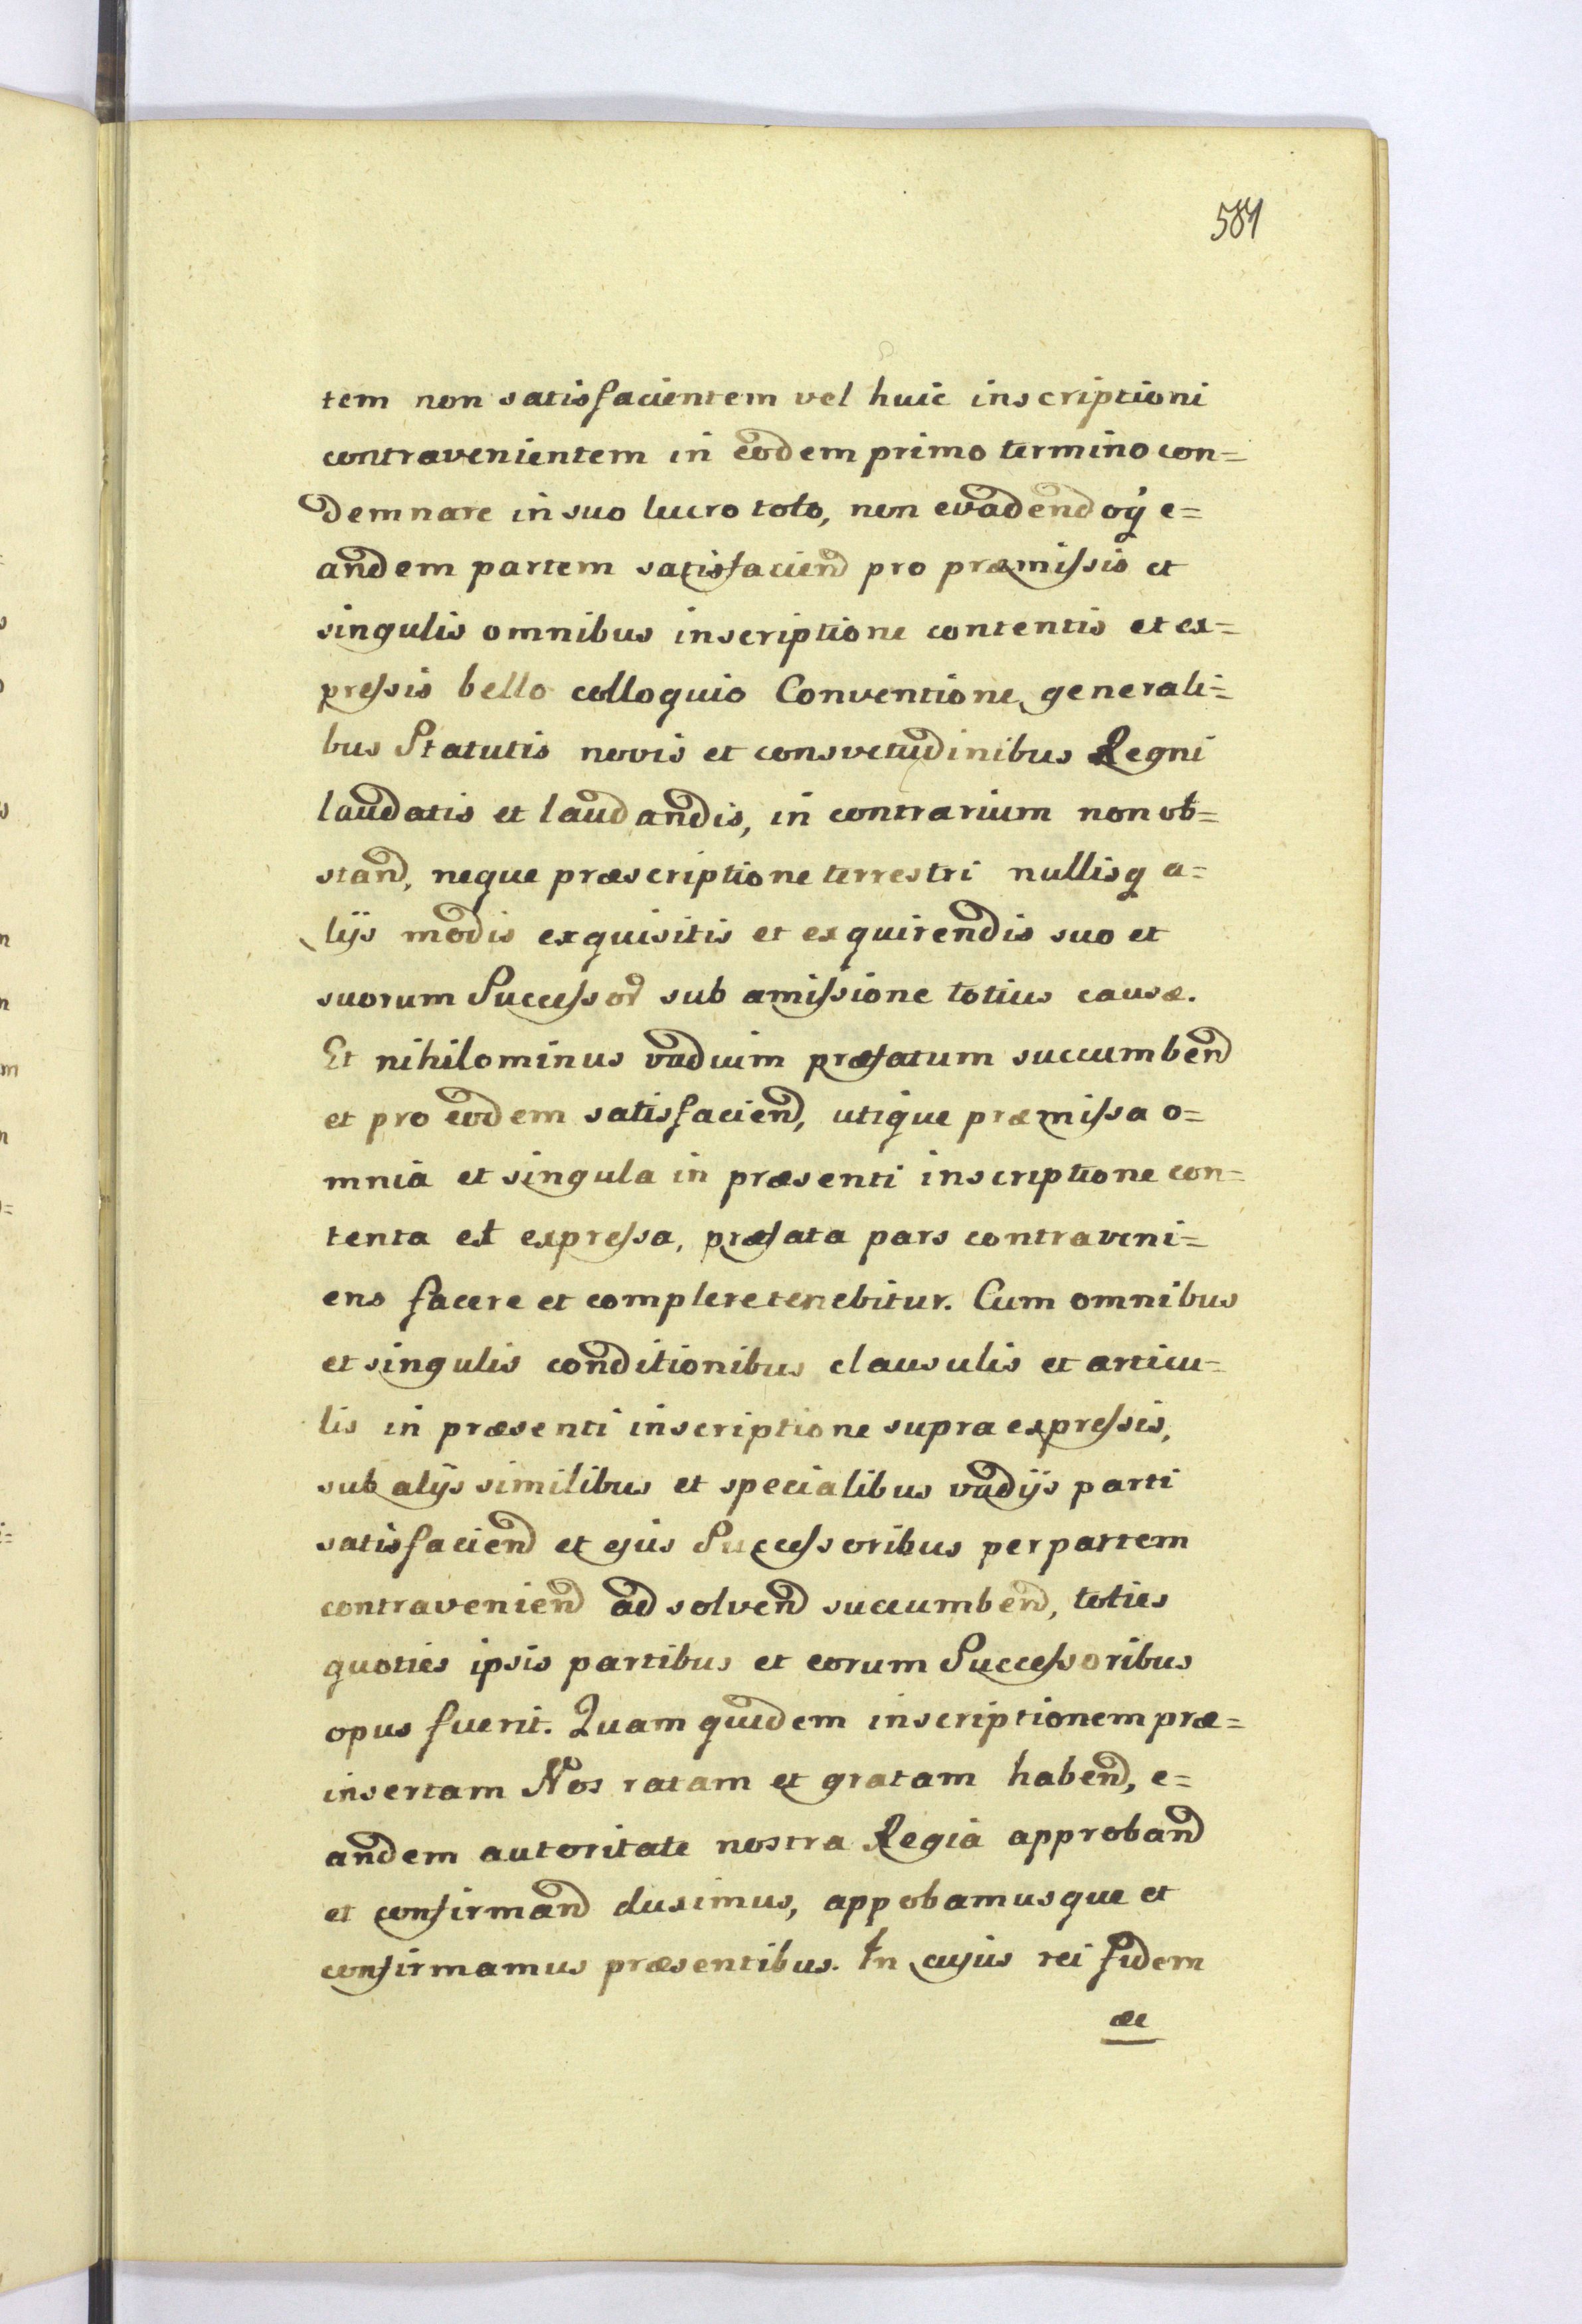 581
tem non satisfacientem vel huic inscriptioni
contravenientem in eodem primo termino con=
demnare in suo lucro toto, non evadendoq́ e=
andem partem satisfaciend pro præmissis et
singulis omnibus inscriptione contentis et ex=
pressis bello colloquio Conventione generali=
bus Statutis novis et consvetudinibus Regni
laudatis et laudandis, in contrarium non ob=
stand, neque præscriptione terrestri nullisq a=
lijs modis exquisitis et exquirendis suo et
suorum Successor sub amissione totius causæ.
Et nihilominus vadium præfatum succumbend
et pro eodem satisfaciend, utique præmissa o=
mnia et singula in præsenti inscriptione con=
tenta et expressa, præfata pars contraveni=
ens facere et complere tenebitur. Cum omnibus
et singulis conditionibus clausulis et articu=
lis in præsenti inscriptione supra expressis,
sub alijs similibus et specialibus vadijs parti
satisfaciend et ejus Successoribus per partem
contraveniend ad solvend succumbend, toties
quoties ipsis partibus et eorum Successoribus
opus fuerit. Quam quidem inscriptionem præ=
insertam Nos ratam et gratam habend, e=
andem autoritate nostra Regia approband
et confirmand duximus, appobamusque et
confirmamus præsentibus. In cujus rei fidem
æc